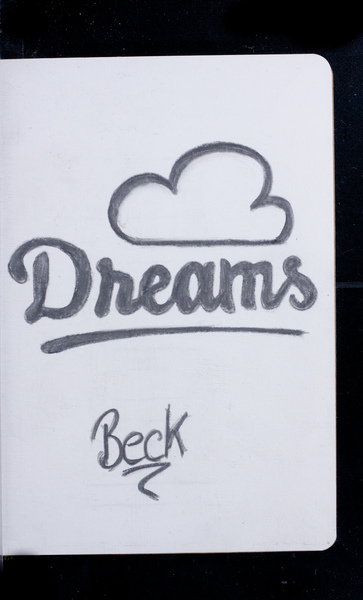 Dreams
Beck